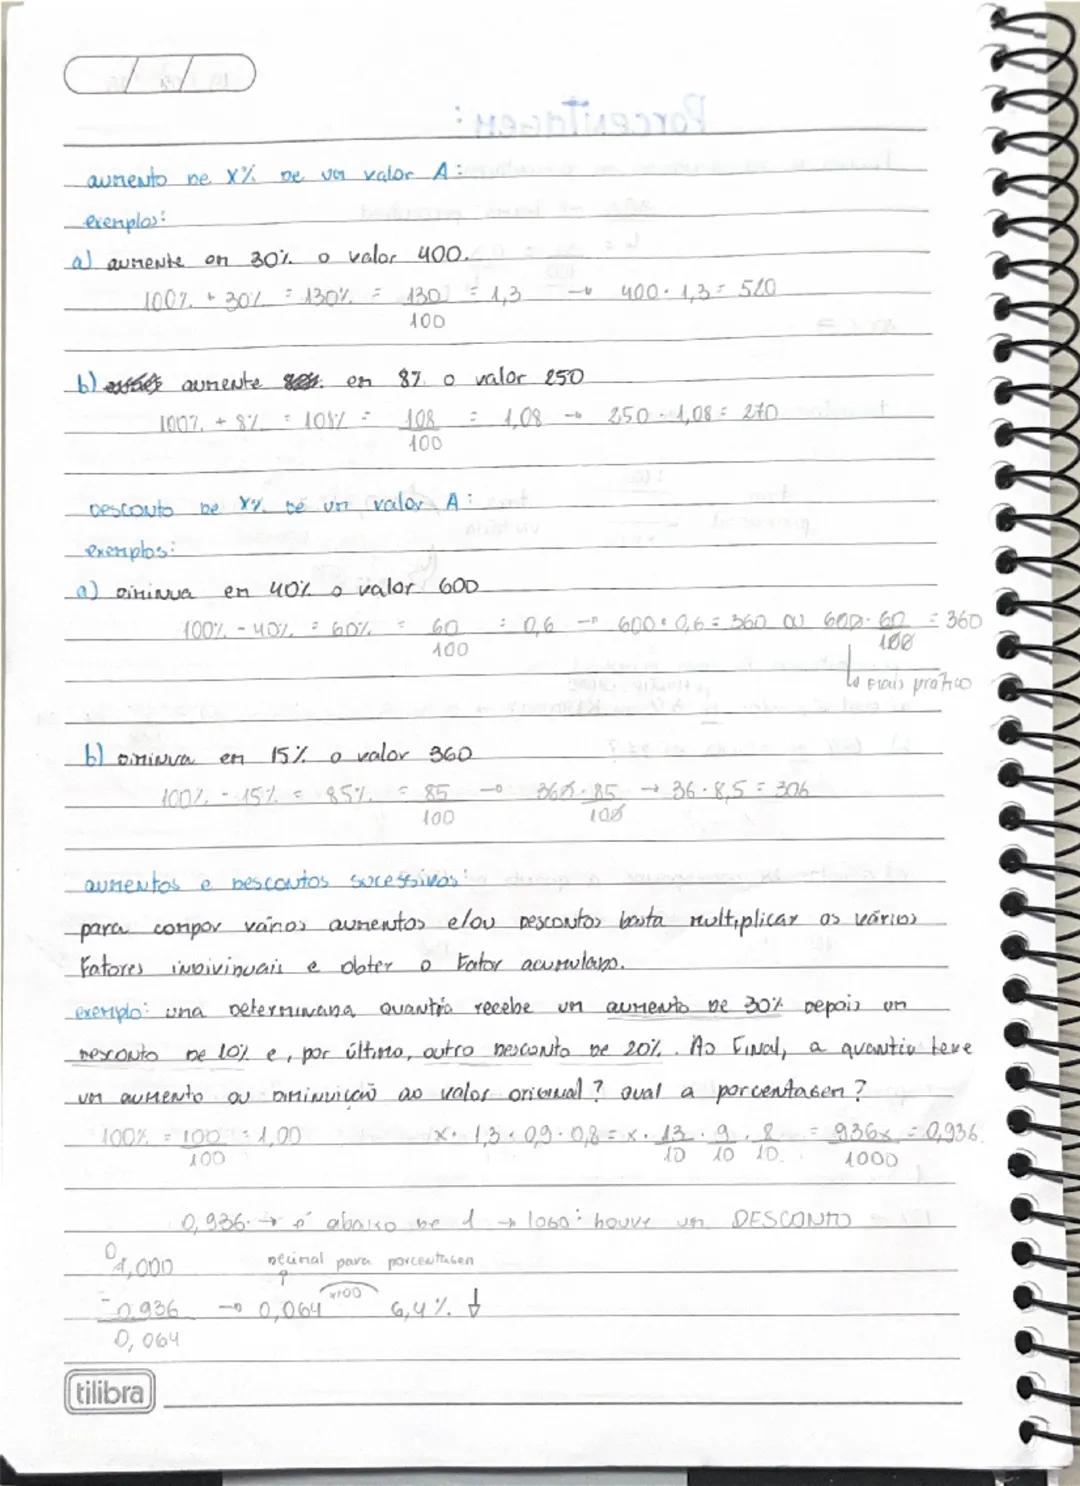 aumento de X% de um valor A:
exemplos:
a) aumente em 30% o valor 400.
100% + 30% = 130% = 130/100 = 1,3 → 400 · 1,3 = 520
b) aumente em 8% o valor 250
100% + 8% = 108% = 108/100 = 1,08 → 250 · 1,08 = 270
Desconto de X% de um valor A:
exemplos:
a) Diminua em 40% o valor 600
100% - 40% = 60% = 60/100 = 0,6 → 600 · 0,6 = 360 ou 600 · 60/100 = 360
↳ mais prático
b) Diminua em 15% o valor 360
100% - 15% = 85% = 85/100 → 360 · 85/100 → 36 · 8,5 = 306
aumentos e descontos sucessivos:
para compor vários aumentos e/ou descontos basta multiplicar os vários
Fatores individuais e obter o Fator acumulado.
exemplo: uma Determinada quantia recebe um aumento de 30% depois um
desconto de 10% e, por último, outro desconto de 20%. Ao Final, a quantia teve
um aumento ou Diminuição ao valor original? qual a porcentagem?
100% = 100/100 = 1,00 x · 1,3 · 0,9 · 0,8 = x · 13/10 · 9/10 · 8/10 = 936x/1000 = 0,936
0,936 → é abaixo de 1 → logo: houve um DESCONTO
1,000 decimal para porcentagem
- 0,936 → 0,064 x100 6,4% ↓
0,064
tilibra